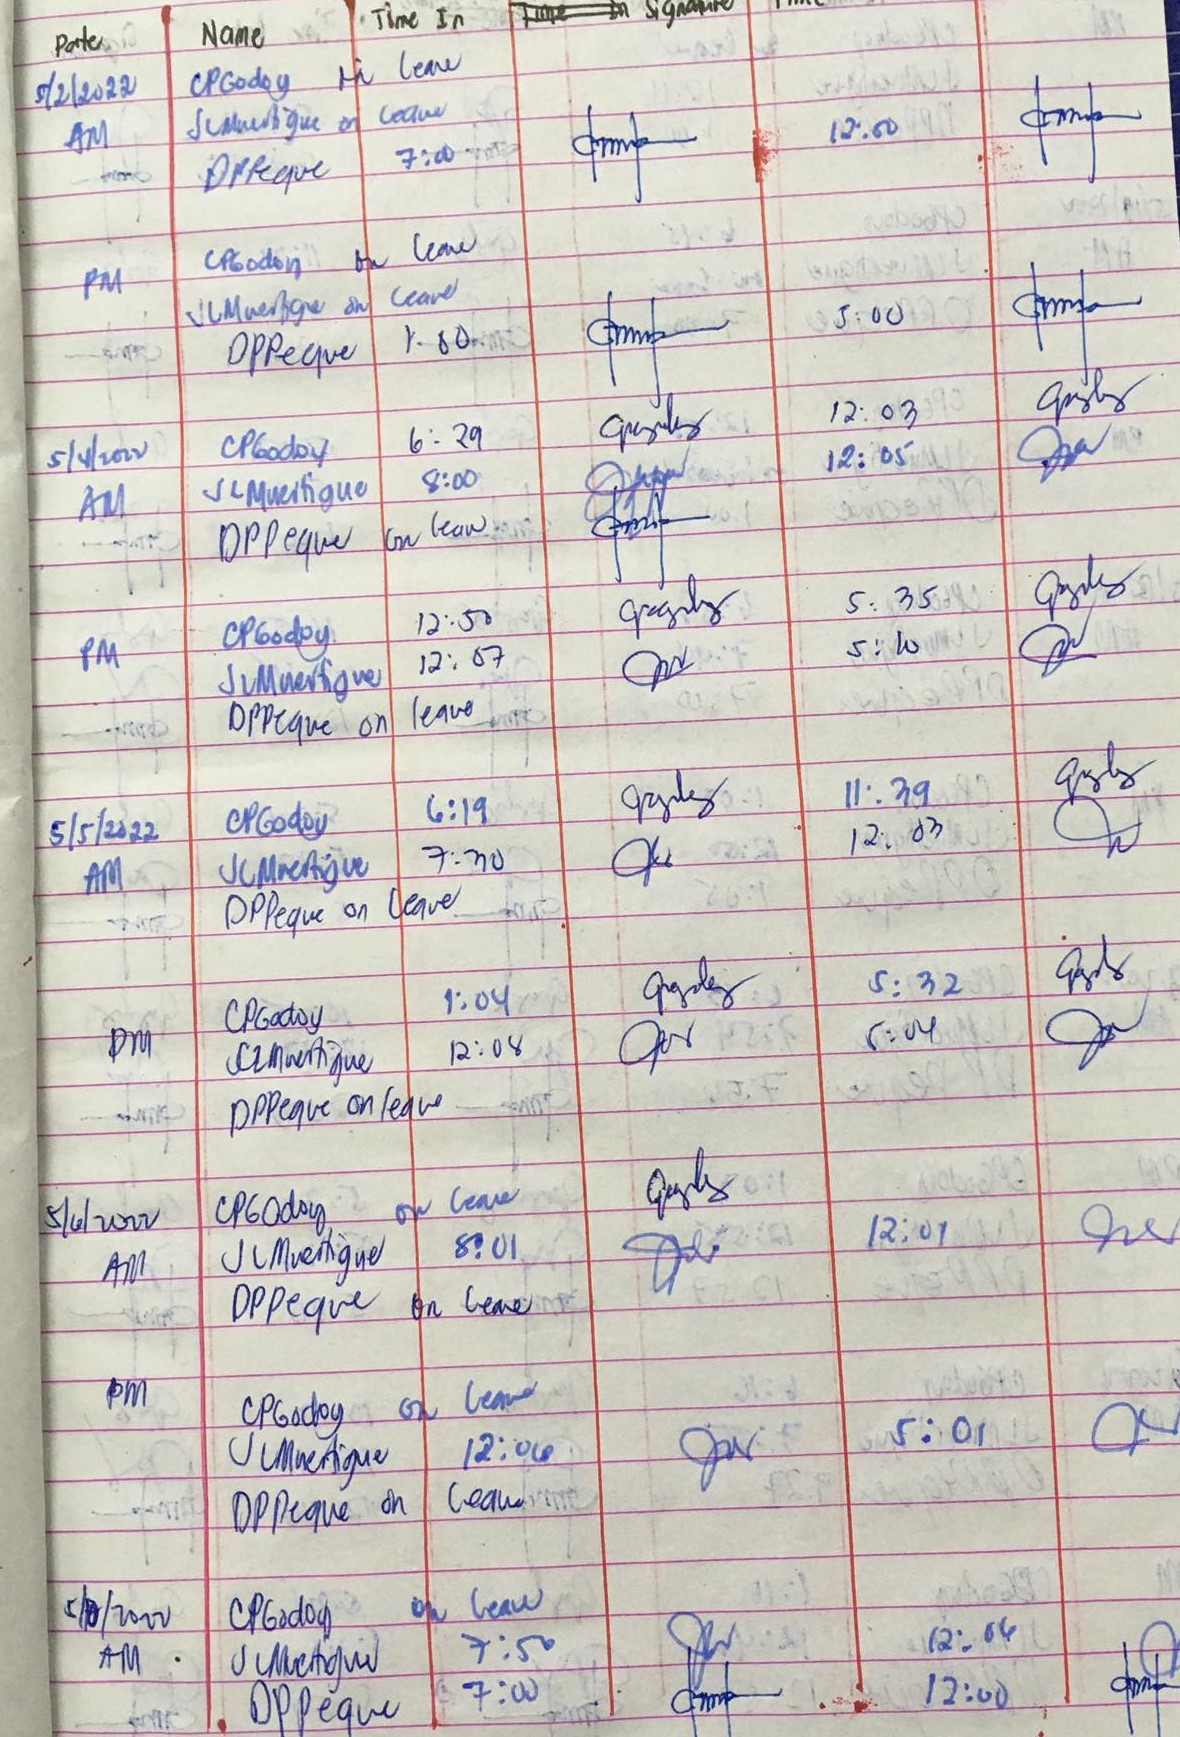 Date Name Time In Time In Signature
5/2/2022 CPGodoy on leave
AM JLMuertigue on leave
DPPeque 7:00 12:00
PM CPGodoy on leave
JLMuertigue on leave
DPPeque 1:00 5:00
5/4/2022 CPGodoy 6:29 12:03
AM JLMuertigue 8:00 12:05
DPPeque on leave
PM CPGodoy 12:50 5:35
JLMuertigue 12:07 5:10
DPPeque on leave
5/5/2022 CPGodoy 6:19 11:39
AM JLMuertigue 7:30 12:03
DPPeque on leave
PM CPGodoy 1:04 5:32
JLMuertigue 12:08 5:04
DPPeque on leave
5/6/2022 CPGodoy on leave
AM JLMuertigue 8:01 12:01
DPPeque on leave
PM CPGodoy on leave
JLMuertigue 12:06 5:01
DPPeque on leave
CPGodoy on leave
AM JLMuertigue 7:50 12:06
DPPeque 7:00 12:00